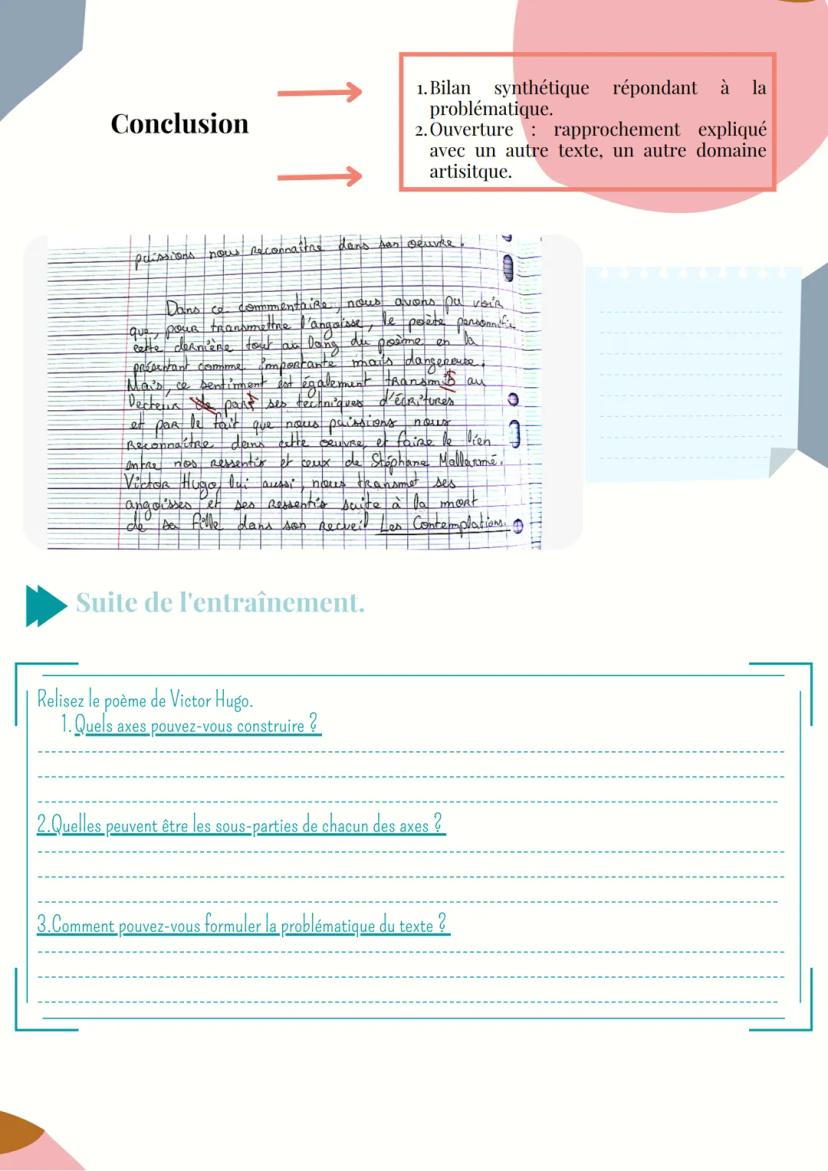 Conclusion
1. Bilan synthétique répondant à la
problématique.
2. Ouverture : rapprochement expliqué
avec un autre texte, un autre domaine
artisitque.
puissions nous reconnaître dans son oeuvre.
Dans ce commentaire, nous avons pu voir
que, pour transmettre l'angoisse, le poète personnifie
cette dernière tout au long du poème en la
présentant comme importante mais dangereuse.
Mais, ce sentiment est également transmis au
lecteur par ses techniques d'écritures
et par le fait que nous puissions nous
reconnaître dans cette oeuvre et faire le lien
entre nos ressentis et ceux de Stéphane Mallarmé.
Victor Hugo, lui aussi, nous transmet ses
angoisses et ses ressentis suite à la mort
de sa fille dans son recueil Les Contemplations.
Suite de l'entraînement.
Relisez le poème de Victor Hugo.
1. Quels axes pouvez-vous construire ?
2.Quelles peuvent être les sous-parties de chacun des axes ?
3.Comment pouvez-vous formuler la problématique du texte ?